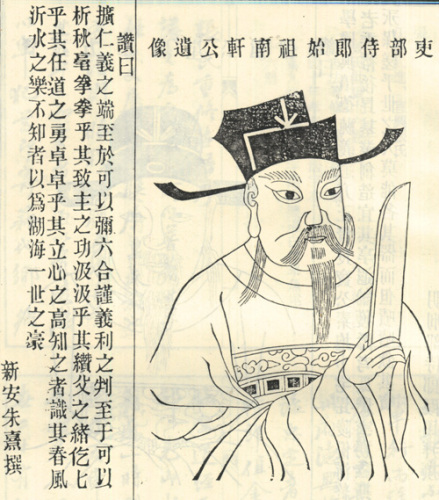 吏部侍郎始祖南軒公遺像
讚曰
擴仁義之端至於可以彌六合謹義利之判至于可以
析秋毫拳拳乎其致主之功汲汲乎其纘父之緒仡匕
乎其任道之勇卓卓乎其立心之高知之者識其春風
沂水之樂不知者以爲湖海一世之豪
新安朱熹撰